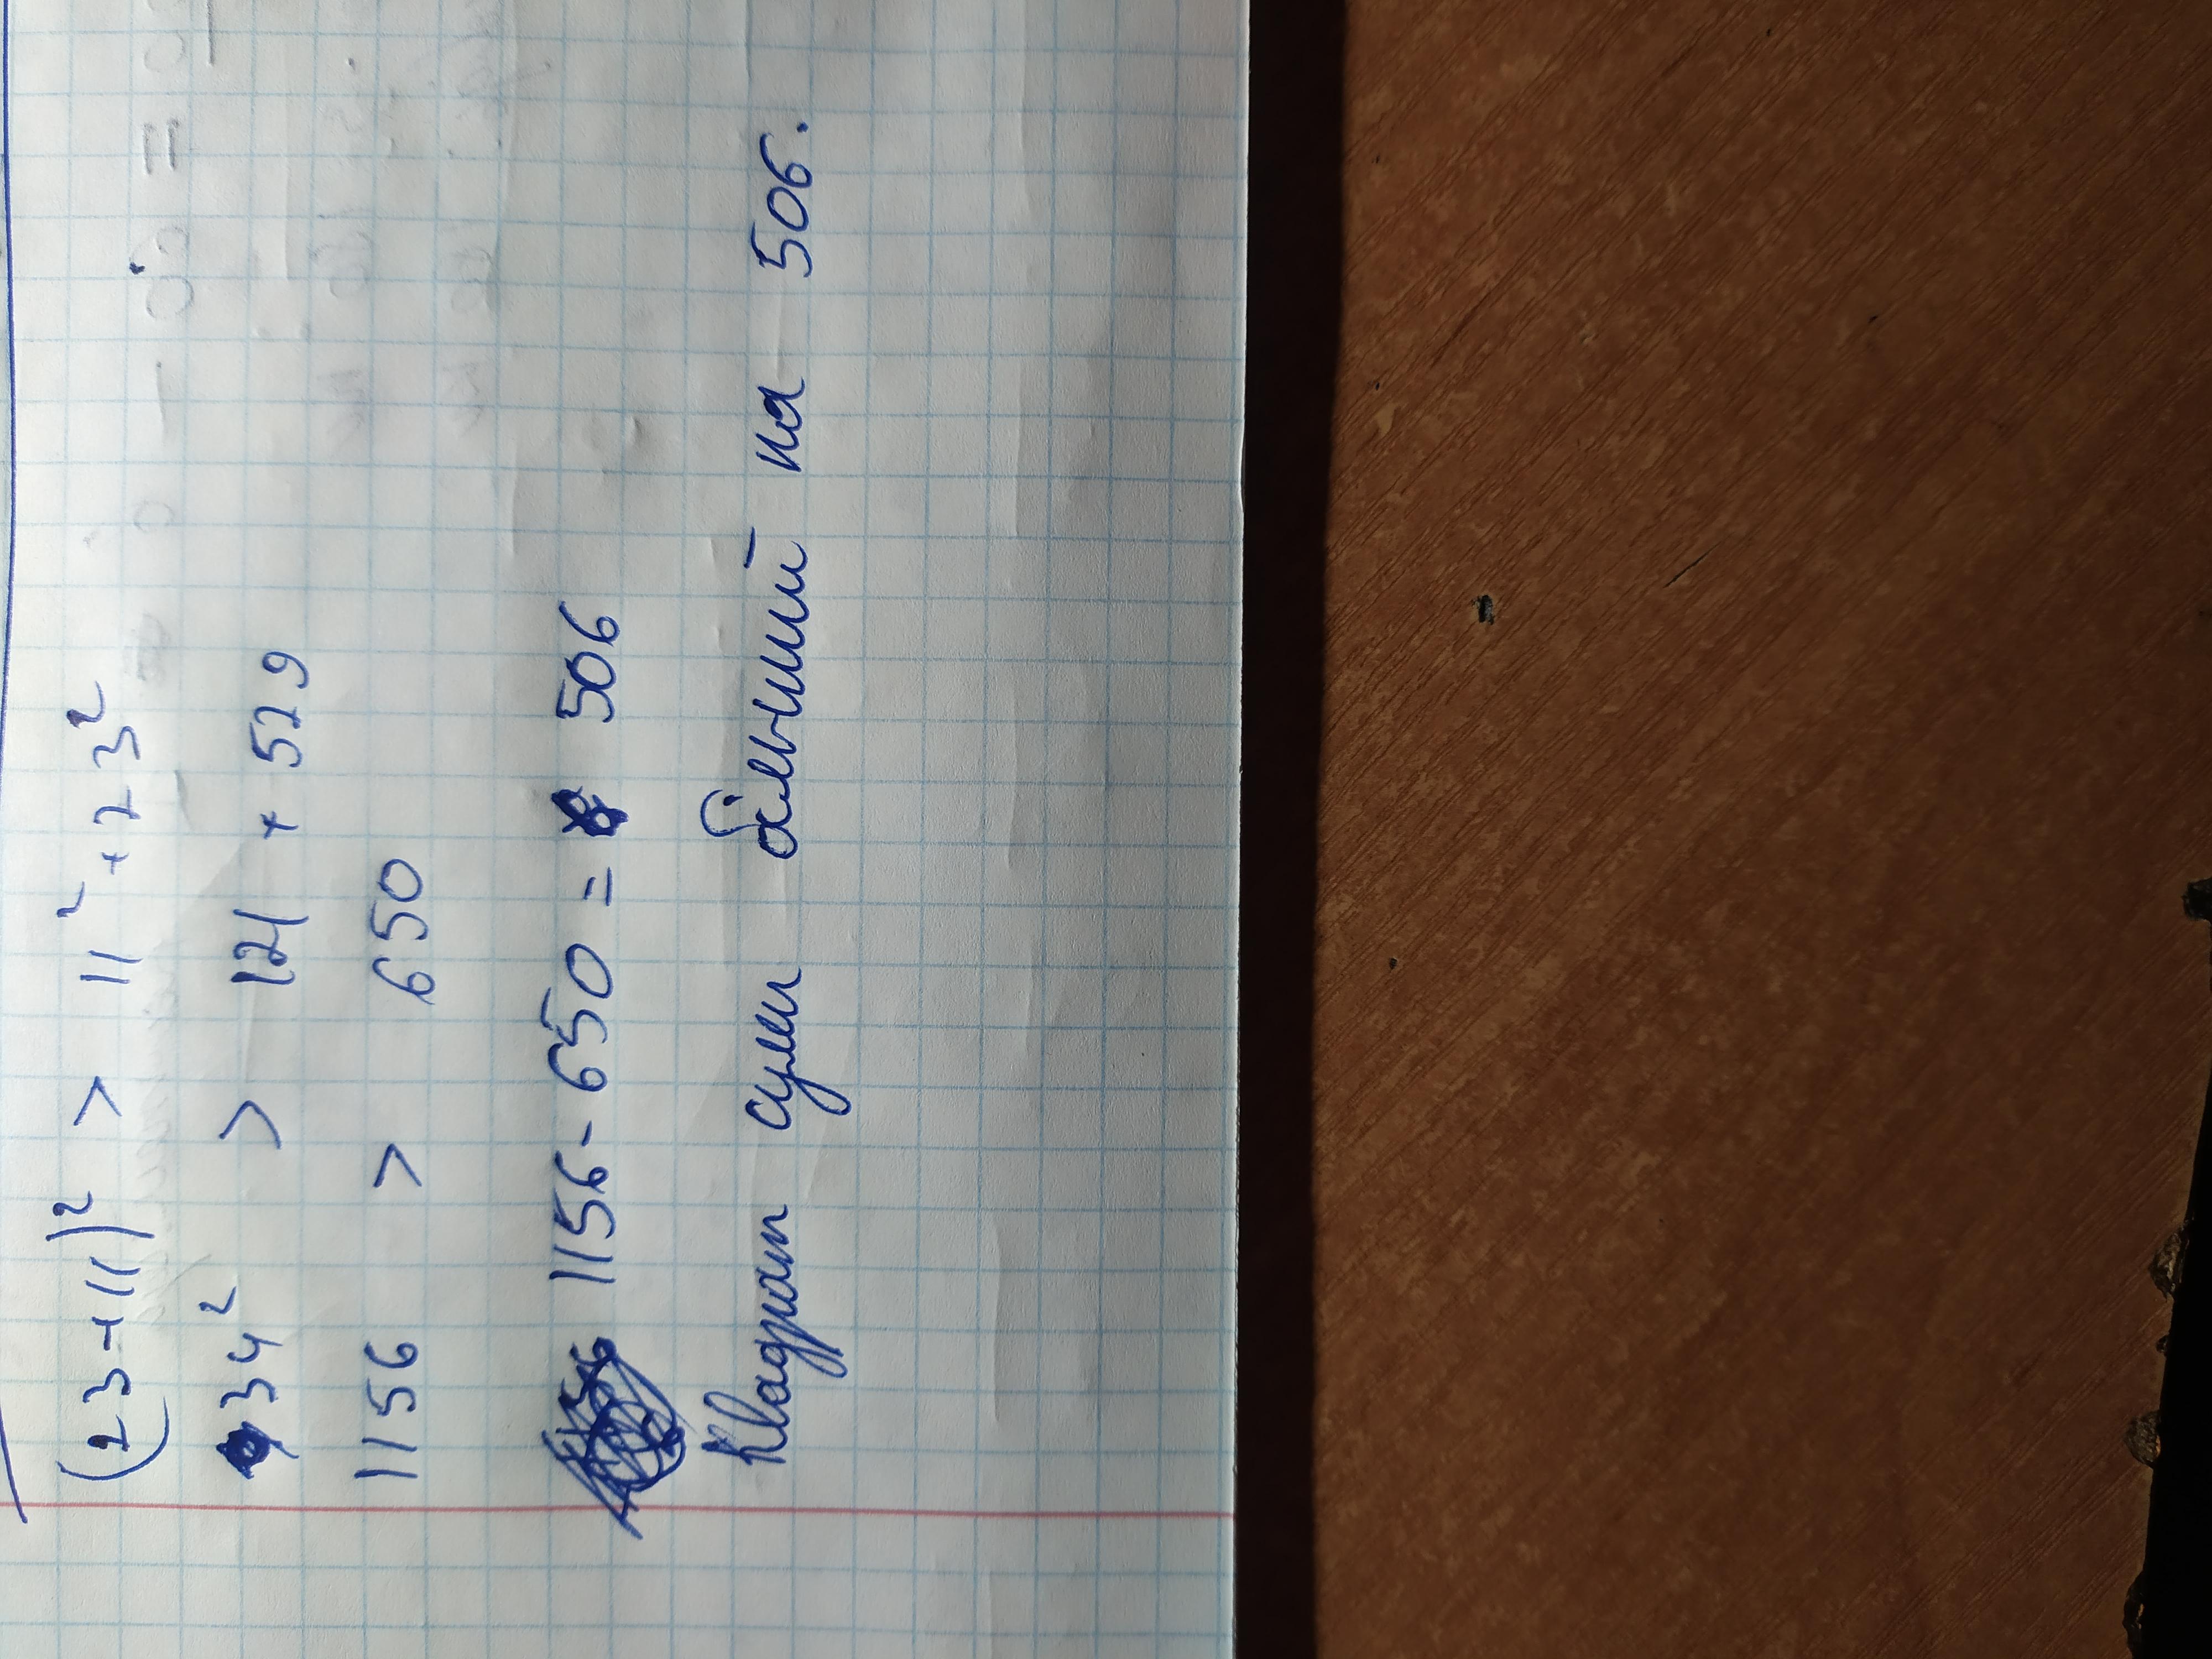 (23+11)² > 11² + 23²
34² > 121 + 529
1156 > 650
1156 - 650 = 506
Квадрат суми більший на 506.